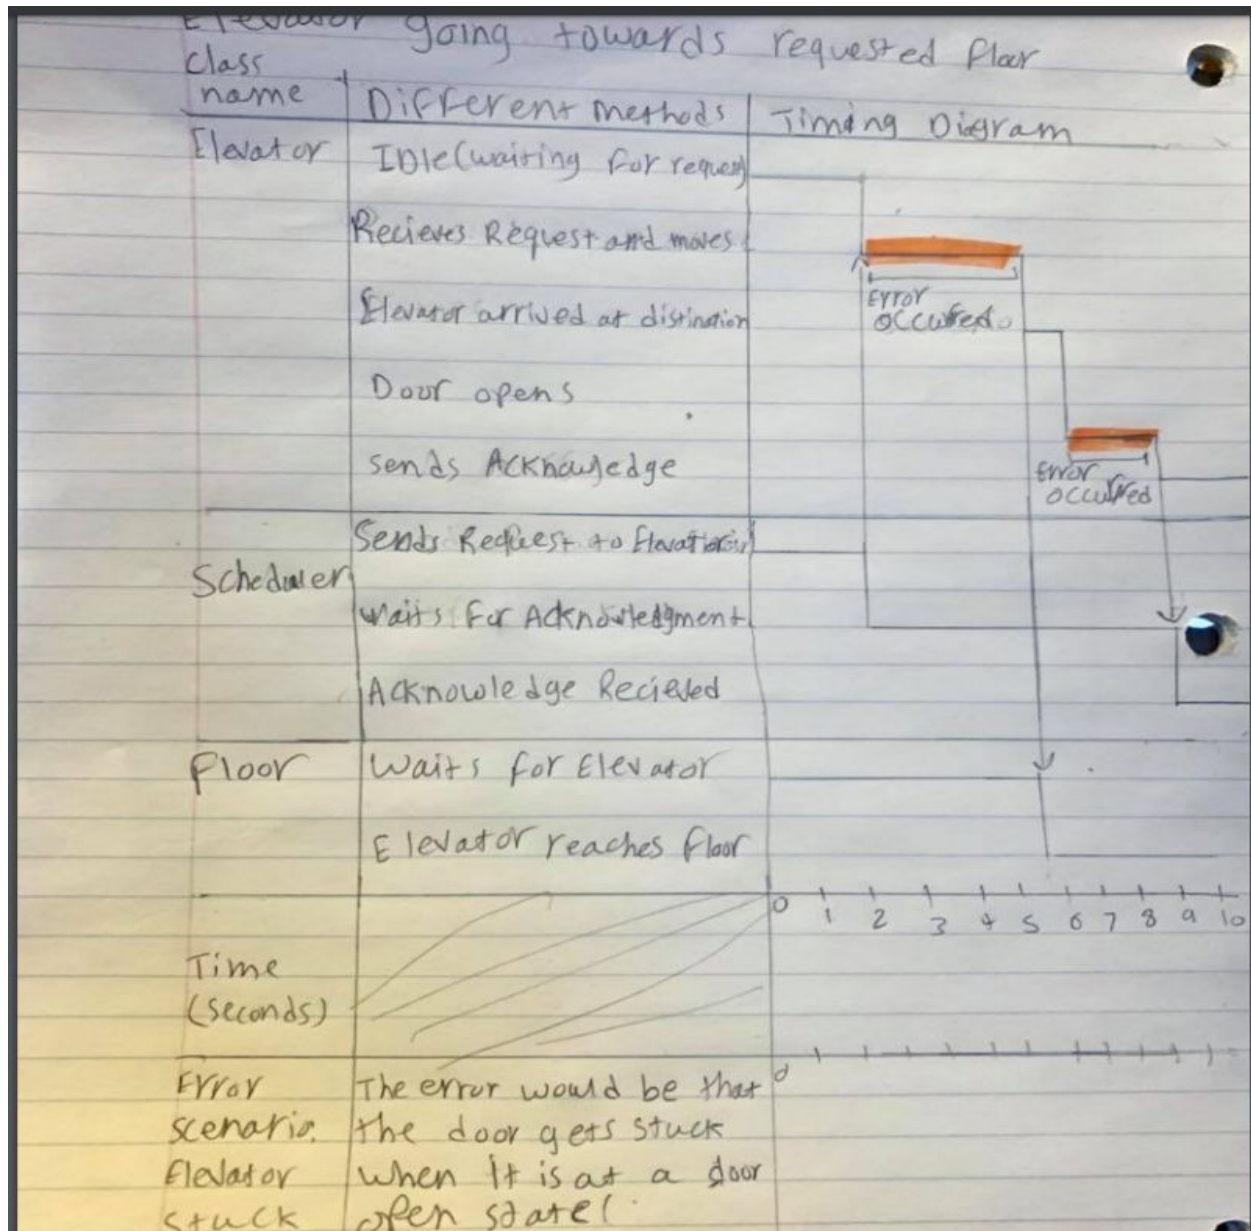 Elevator going towards requested floor
Class name | Different methods | Timing Diagram
Elevator
IDle (waiting for request)
Recieves Request and moves
Elevator arrived at distination
Door opens
sends Acknowledge
Error
occurred
Error
occurred
Scheduler
Sends Request to Elevator
Waits for Acknowledgment
Acknowledge Recieved
Floor
Waits for Elevator
Elevator reaches floor
0 1 2 3 4 5 6 7 8 9 10
Time
(seconds)
0
Error
scenario.
Elevator
stuck
The error would be that
the door gets stuck
when it is at a door
open state